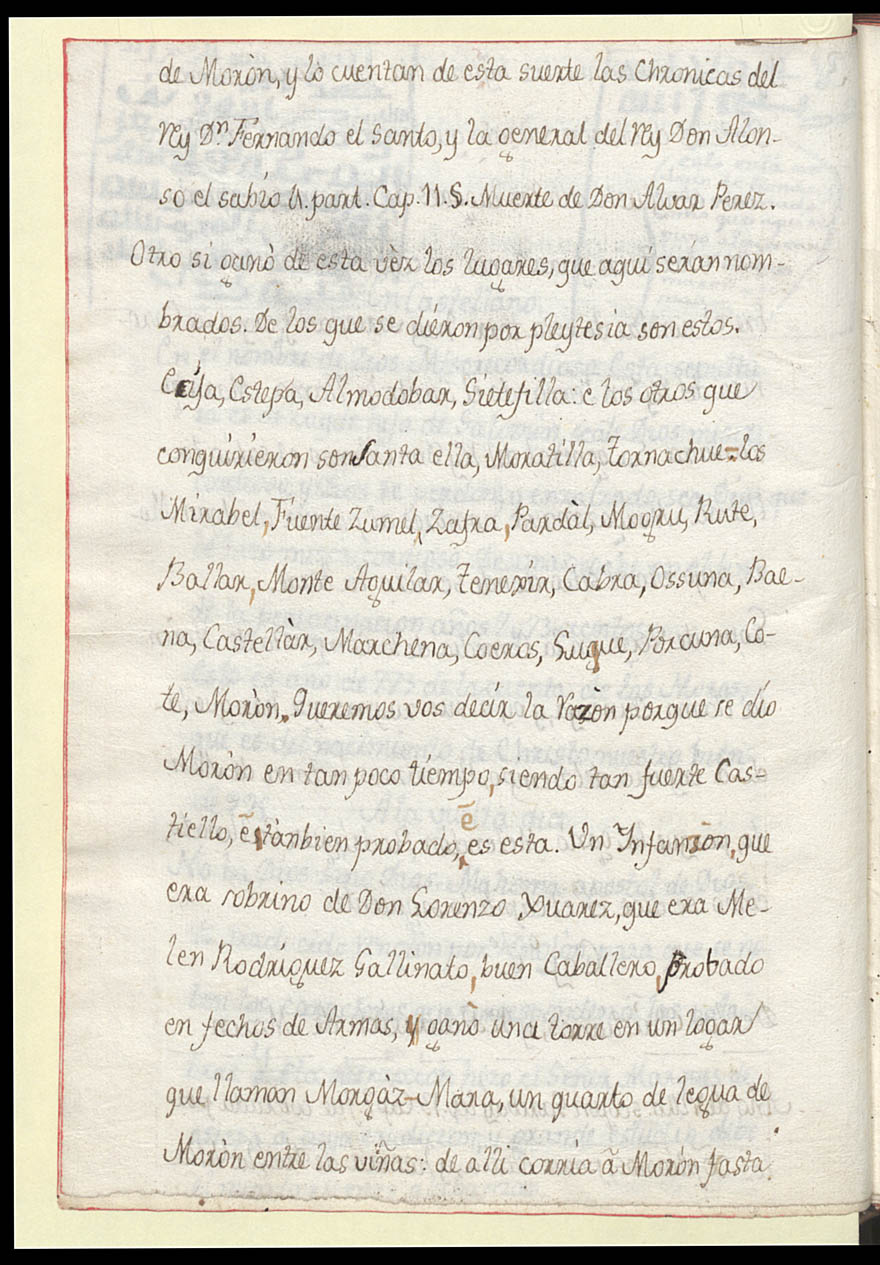 de Moròn, y lo cuentan de esta suerte las Chronicas del
Rey Dn. Fernando el Santo, y la general del Rey Don Alon-
so el sabio 4. part. Cap. 11. §. Muerte de Don Alvar Perez.
Otro si ganò de esta vèz los lugares, que aqui seràn nom-
brados. De los que se dieron por pleytesia son estos.
Ecija, Estepa, Almodobar, Sietefilla: e los otros que
conquirieron son Santa ella, Moratilla, Fornachue-los
Mirabel, Fuente Zumel, Zafra, Pardàl, Mogru, Rute,
Ballar, Monte Aguilar, Zenexir, Cabra, Ossuna, Bae-
na, Castellàr, Marchena, Coeros, Guque, Porcuna, Co-
te, Moròn. Queremos vos decir la razòn porque se dio
Moròn en tan poco tiempo, siendo tan fuerte Cas-
tiello, ē tànbien probado, ē es esta. Un Infanzòn, que
era sobrino de Don Lorenzo Xuarez, que era Me-
len Rodriguez Gallinato, buen Caballero, probado
en fechos de Armas, y ganò una torre en un logar
que llaman Morgàz-Mara, un quarto de legua de
Moròn entre las viñas: de alli corria ā Moròn fasta